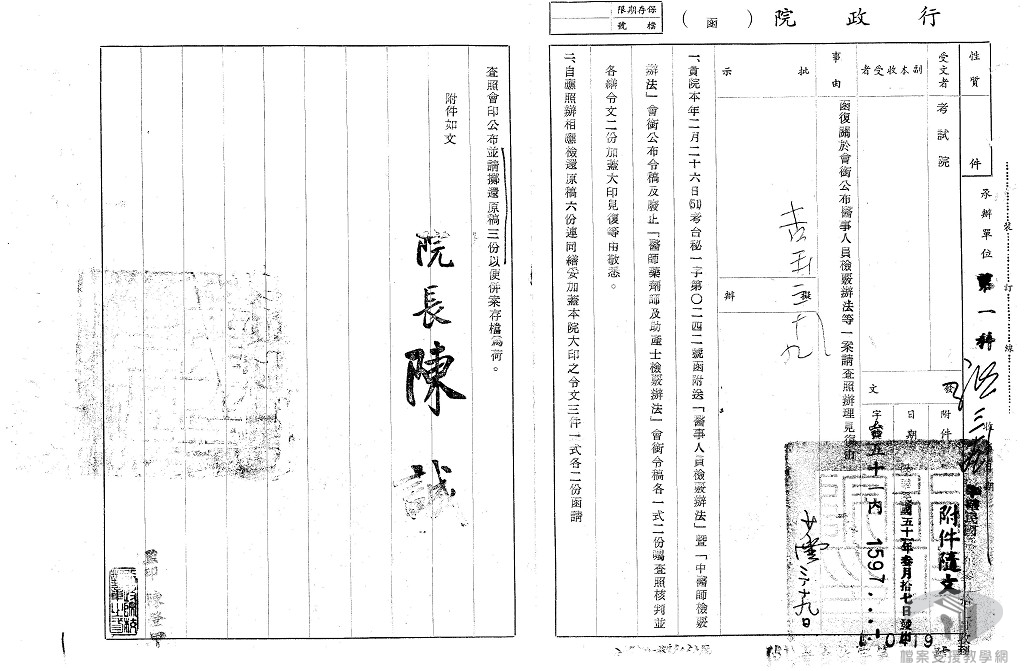 行政院（函）
保存期限
檔號
性質
件
承辦單位
第一科
受文者
考試院
副本收受者
發文
附件
附件隨文
日期
中華民國五十一年叁月拾七日發出
字
五十一內1597
事由
函復關於會銜公布醫事人員檢覈辦法等一案請查照辦理見復由
批示
擬辦
裝
訂
線
一、貴院本年二月二十六日(51)考台秘一字第〇二四二號函附送「醫事人員檢覈辦法」暨「中醫師檢覈
辦法」會銜公布令稿及廢止「醫師藥劑師及助產士檢覈辦法」會銜令稿各一式二份囑查照核判並
各繕令文二份加蓋大印見復等由敬悉。
二、自應照辦相應檢還原稿六份連同繕妥加蓋本院大印之令文三件一式各二份函請
查照會印公布並請擲還原稿三份以便併案存檔為荷。
附件如文
院長陳誠
監印
檔案支援教學網